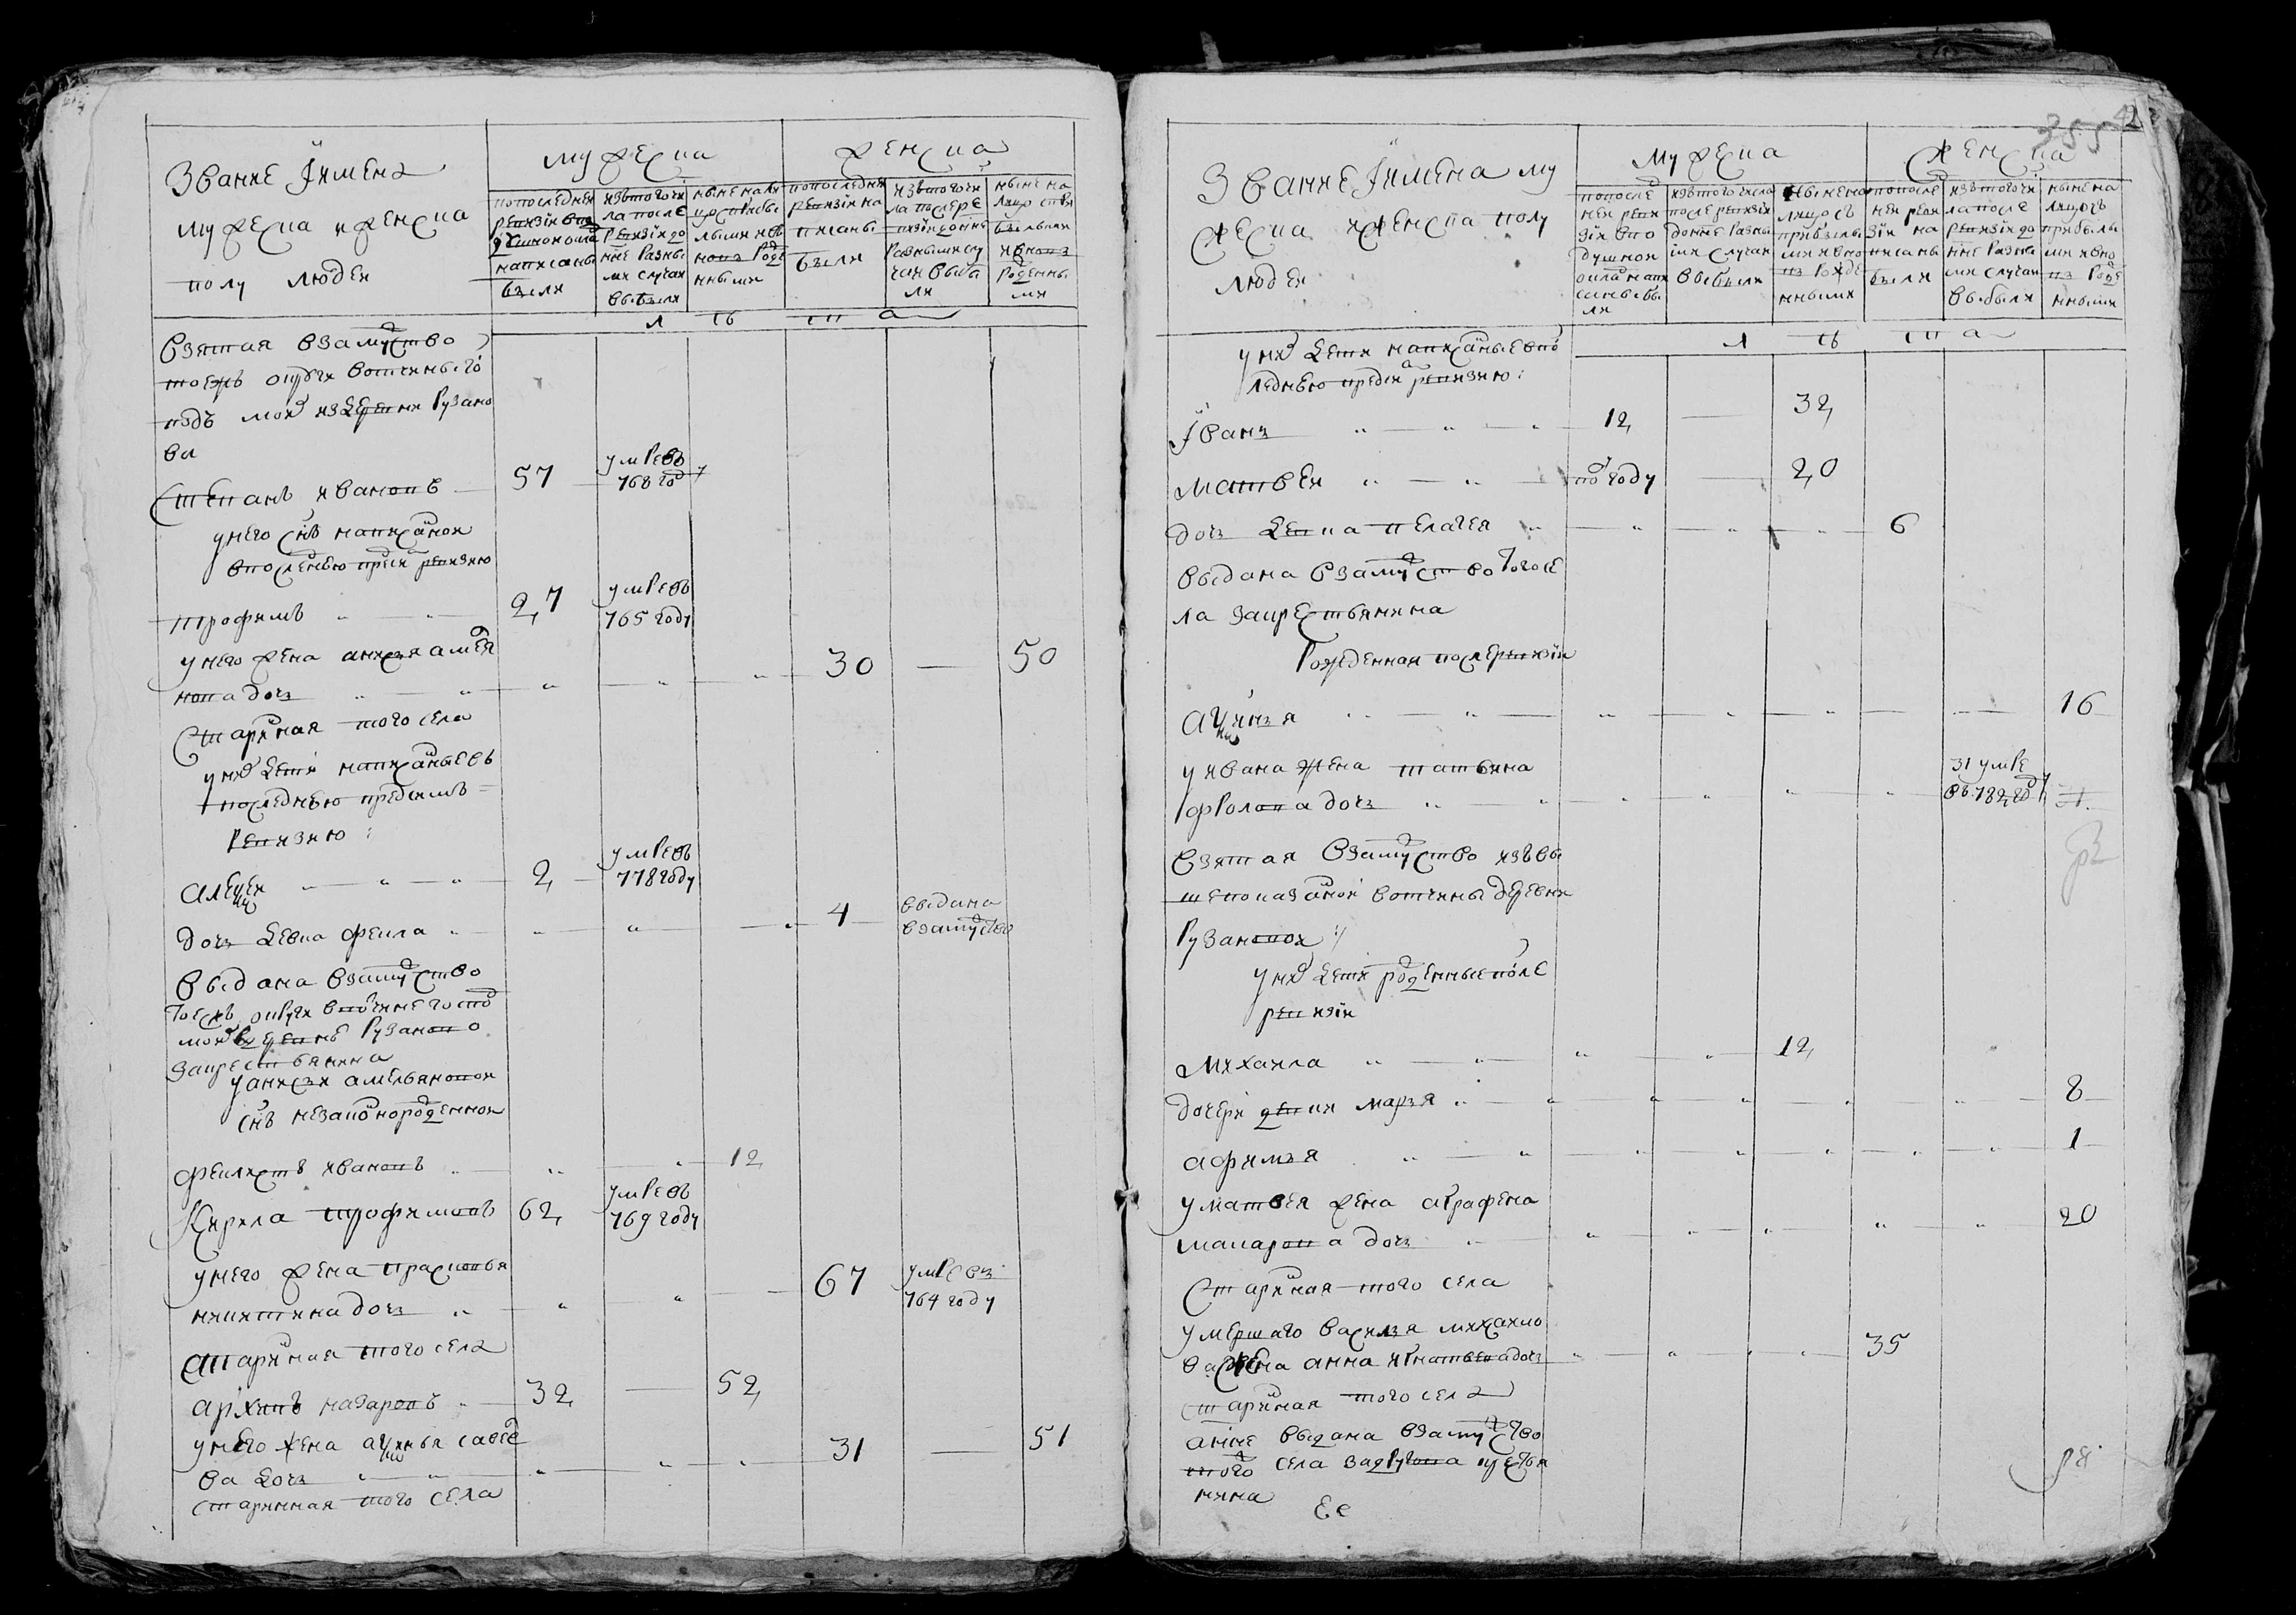 355
42
Звание Ïимена
мужеска и женска
полу людей
мужеска
женска
по последней ревизии в подушном окладе написаны были
из того числа после ревизии до ныне разными случаи выбыли
ныне на лицо с прибылыми и вновь рожденными
по последней ревизии написаны были
из того числа после ревизии до ныне разными случаи выбыли
ныне на лицо с прибылыми и вновь рожденными
лѣта
взятая взамужство
тоежъ округи вотчины его
изъ деревни Рузано
ви
Степанъ ивановъ 57 умре въ 768 году
у него снъ написаной
в последнею пред сим ревизию
трофимъ 27 умре въ 765 году
у него жена анисья амелья
нова дочь 30 — 50
старинная того села
у них дети написаные въ
последнею пред симъ
ревизию:
алексей 2 умре въ 778 году
дочь девка фекла 4 выдана взамужство
выдана взамужство
тоежъ округи вотчине госпо
в деревне Рузаново
за крестьянина
у анисьи амельяновой
снъ незаконорожденной
феликстъ ивановъ 12
Кирила трофимовъ 62 умре въ 769 году
у него жена прасковья
никитина дочь 67 умре въ 764 году
старинная того села
архипъ назаровъ 32 — 52
у него жена аксинья савел
ва дочь 31 — 51
старинная того села
Звание Ïимена му
жеска и женска полу
людей
мужеска
женска
по последней ревизии в подушном окладе написаны были
из того числа после ревизии до ныне разными случаи выбыли
ныне на лицо съ прибылыми и вновь рожденными
по последней ревизии написаны были
из того числа после ревизии до ныне разными случаи выбыли
ныне на лицо съ прибылыми и вновь рожденными
лѣта
у них дети написаные в пос
леднею пред сим ревизию:
Ïванъ 12 — 32
матвей полгоду — 20
дочь девка пелагея 6
выдана взамужство того се
ла за крестьянина
Рожденная после ревизии
аксинья 16
у ивана жена татьяна
фролова дочь 31 умре въ 782 году
взятая взамужство изъ вы
шепоказаной вотчины деревни
Рузановой
у них дети рожденные после
ревизии
михаила 12
дочери девки марья 8
афимья 1
у матвея жена аграфена
макарова дочь 20
старинная того села
умершаго василья михаило
ва жена анна игнатьева дочь 35
старинная того села
анне выдана взамужство
того села за другова крестья
нина
Ее